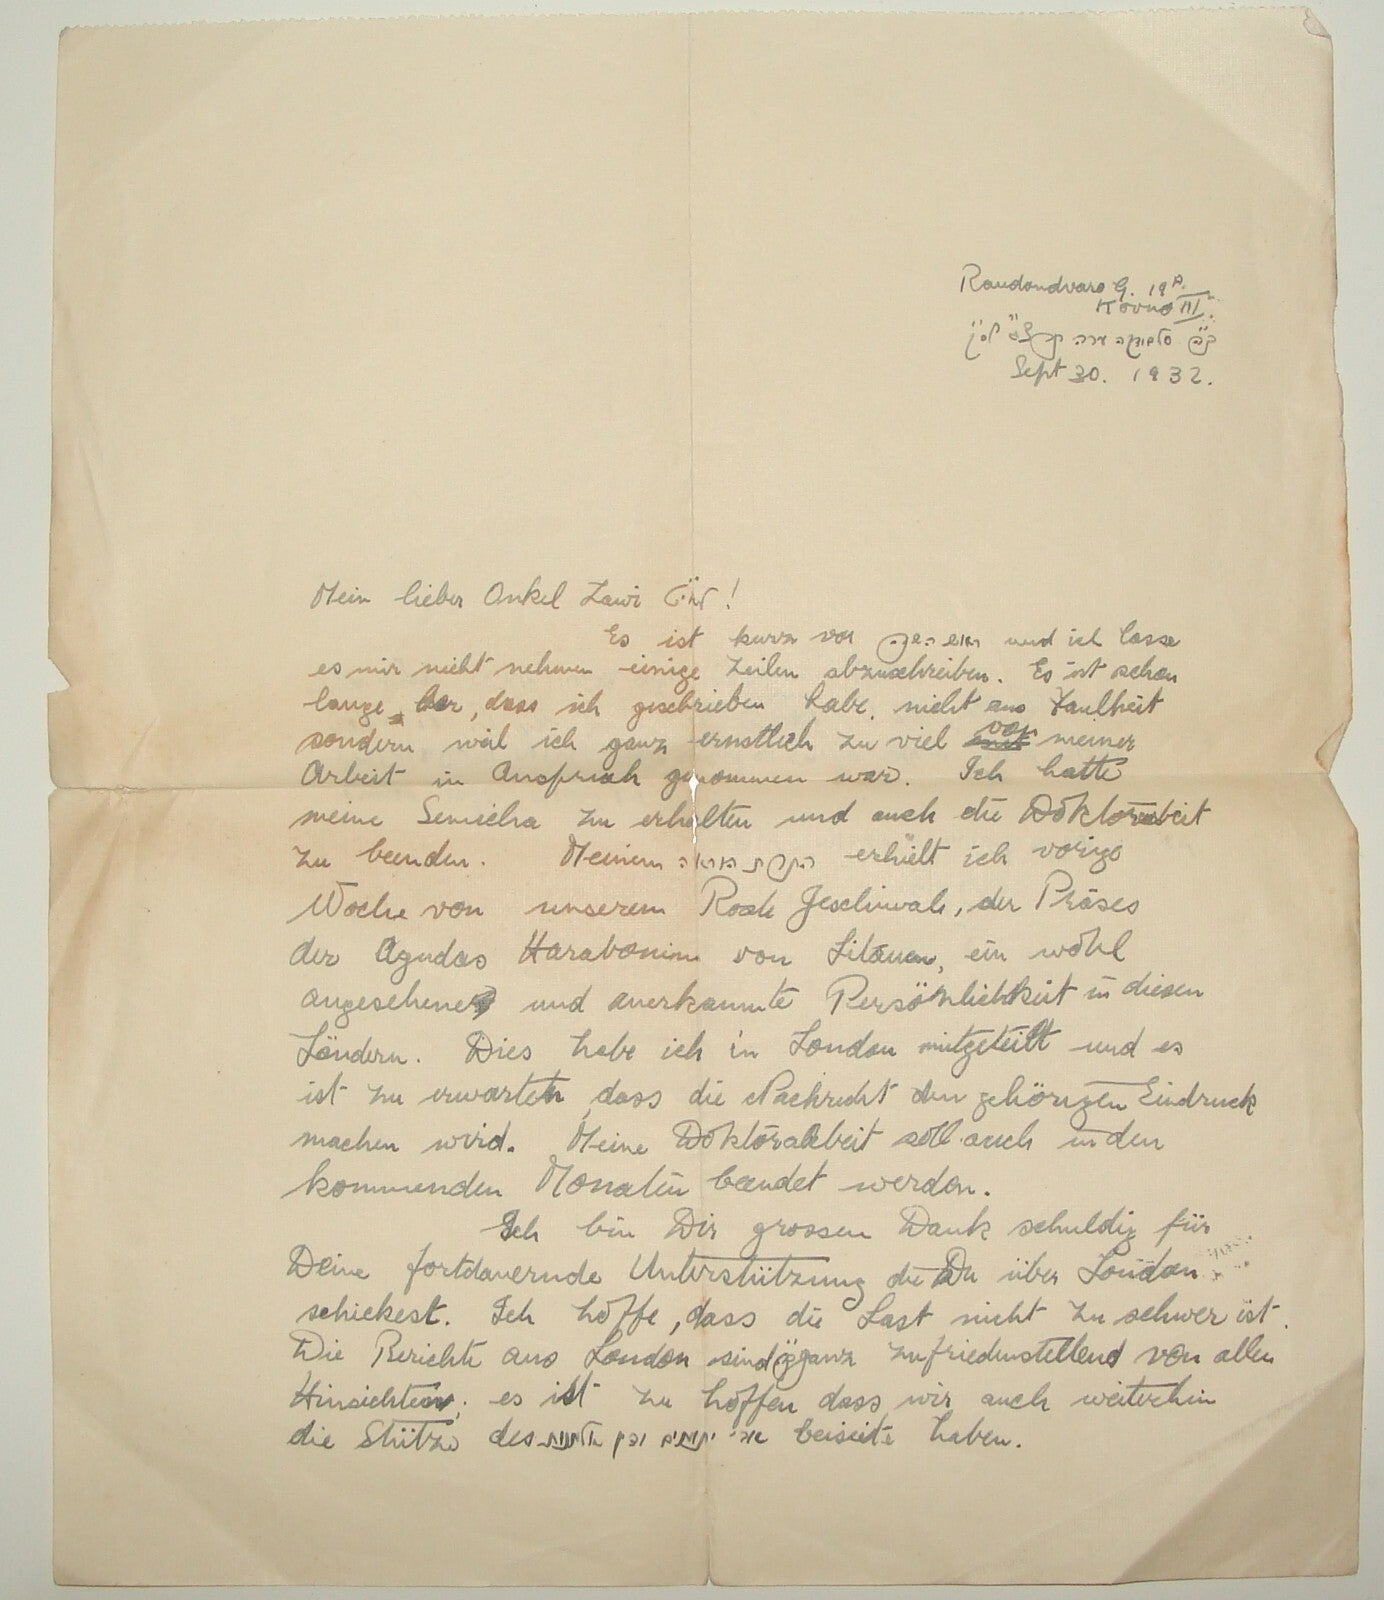 Raudondvaro G. 19A.
Kovno III.
Sept 30. 1932.
Mein lieber Onkel Zawi !
Es ist kurz vor und ich lasse
es mir nicht nehmen einige Zeilen abzuschreiben. Es ist schon
lange her, dass ich geschrieben habe, nicht aus Faulheit
sondern weil ich ganz ernstlich zu viel von meiner
Arbeit in Anspruch genommen war. Ich hatte
meine Semicha zu erhalten und auch die Doktorarbeit
zu beenden. Meinem erhielt ich vorige
Woche von unserem Rosh Jeschiwah, der Präses
der Agudas Harabonim von Litauen, ein wohl
angesehene und anerkannte Persönlichkeit in diesen
Ländern. Dies habe ich in London mitgeteilt und es
ist zu erwarten, dass die Nachricht den gehörigen Eindruck
machen wird. Meine Doktorarbeit soll auch in den
kommenden Monaten beendet werden.
Ich bin Dir grossen Dank schuldig für
Deine fortdauernde Unterstützung die Du über London
schickest. Ich hoffe, dass die Last nicht zu schwer ist.
Die Berichte aus London sind ganz zufriedenstellend von allen
Hinsichten; es ist zu hoffen dass wir auch weiterhin
die Stütze des אבי יתומים ודין אלמנות beiseite haben.